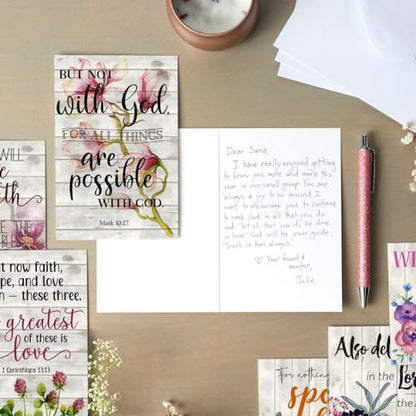 BUT NOT
with God,
FOR ALL THINGS
are
possible
WITH GOD.
Mark 10:27
Dear Sara,
I have really enjoyed getting
to know you more and more this
year in our small group. You are
always a joy to be around. I
want to encourage you to continue
to seek God in all that you do
and "let all that you do be done
in love." God will be your guide.
Trust in him always.
♡ Your friend &
mentor,
Julie
WILL
THE
BLESS
now faith,
and love
— these three.
greatest
of these is
love
1 Corinthians 13:13
For nothing
Also del
in the
Lor
the